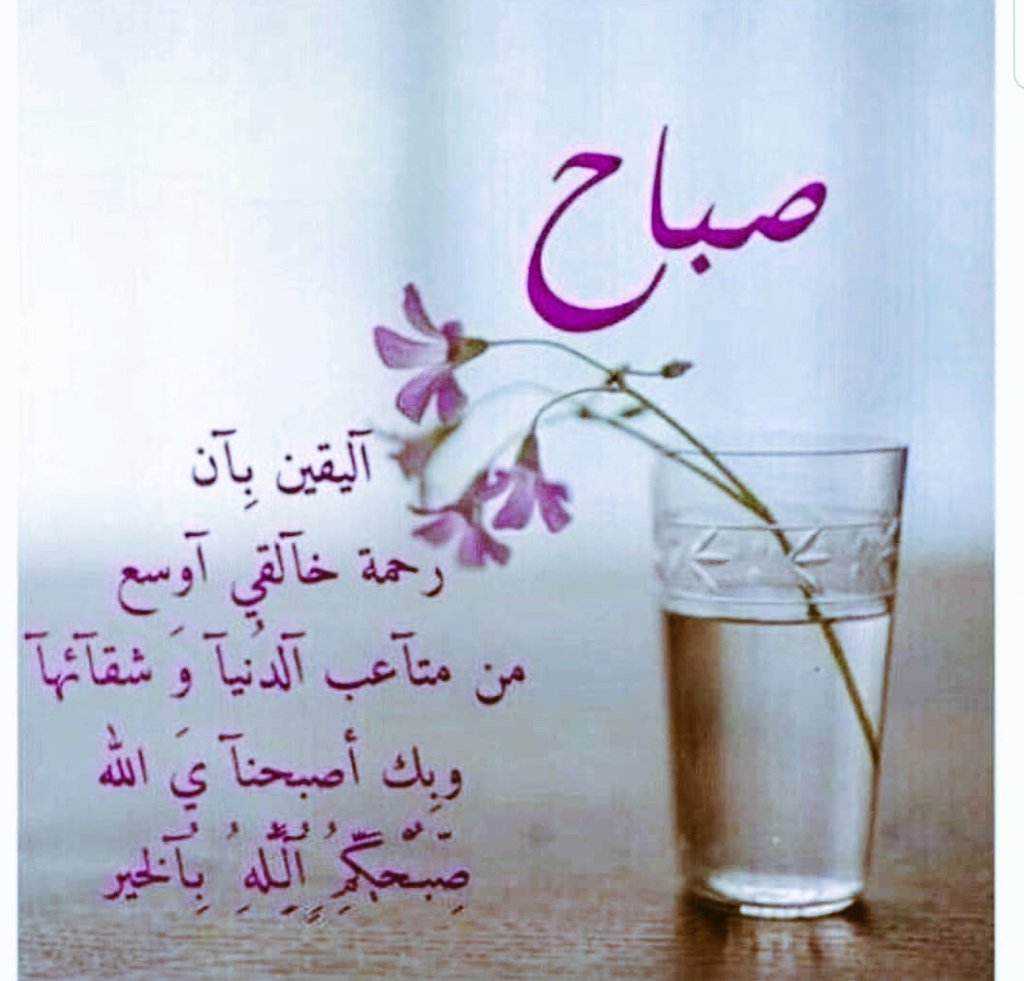 صباح
آليقين بِآن
رحمة خآلقي آوسع
من متآعب آلدنيآ وَ شقآئهآ
وبِك أصبحنآ يَ الله
صِبّحكُمِ آلَلهِ بِآلخير